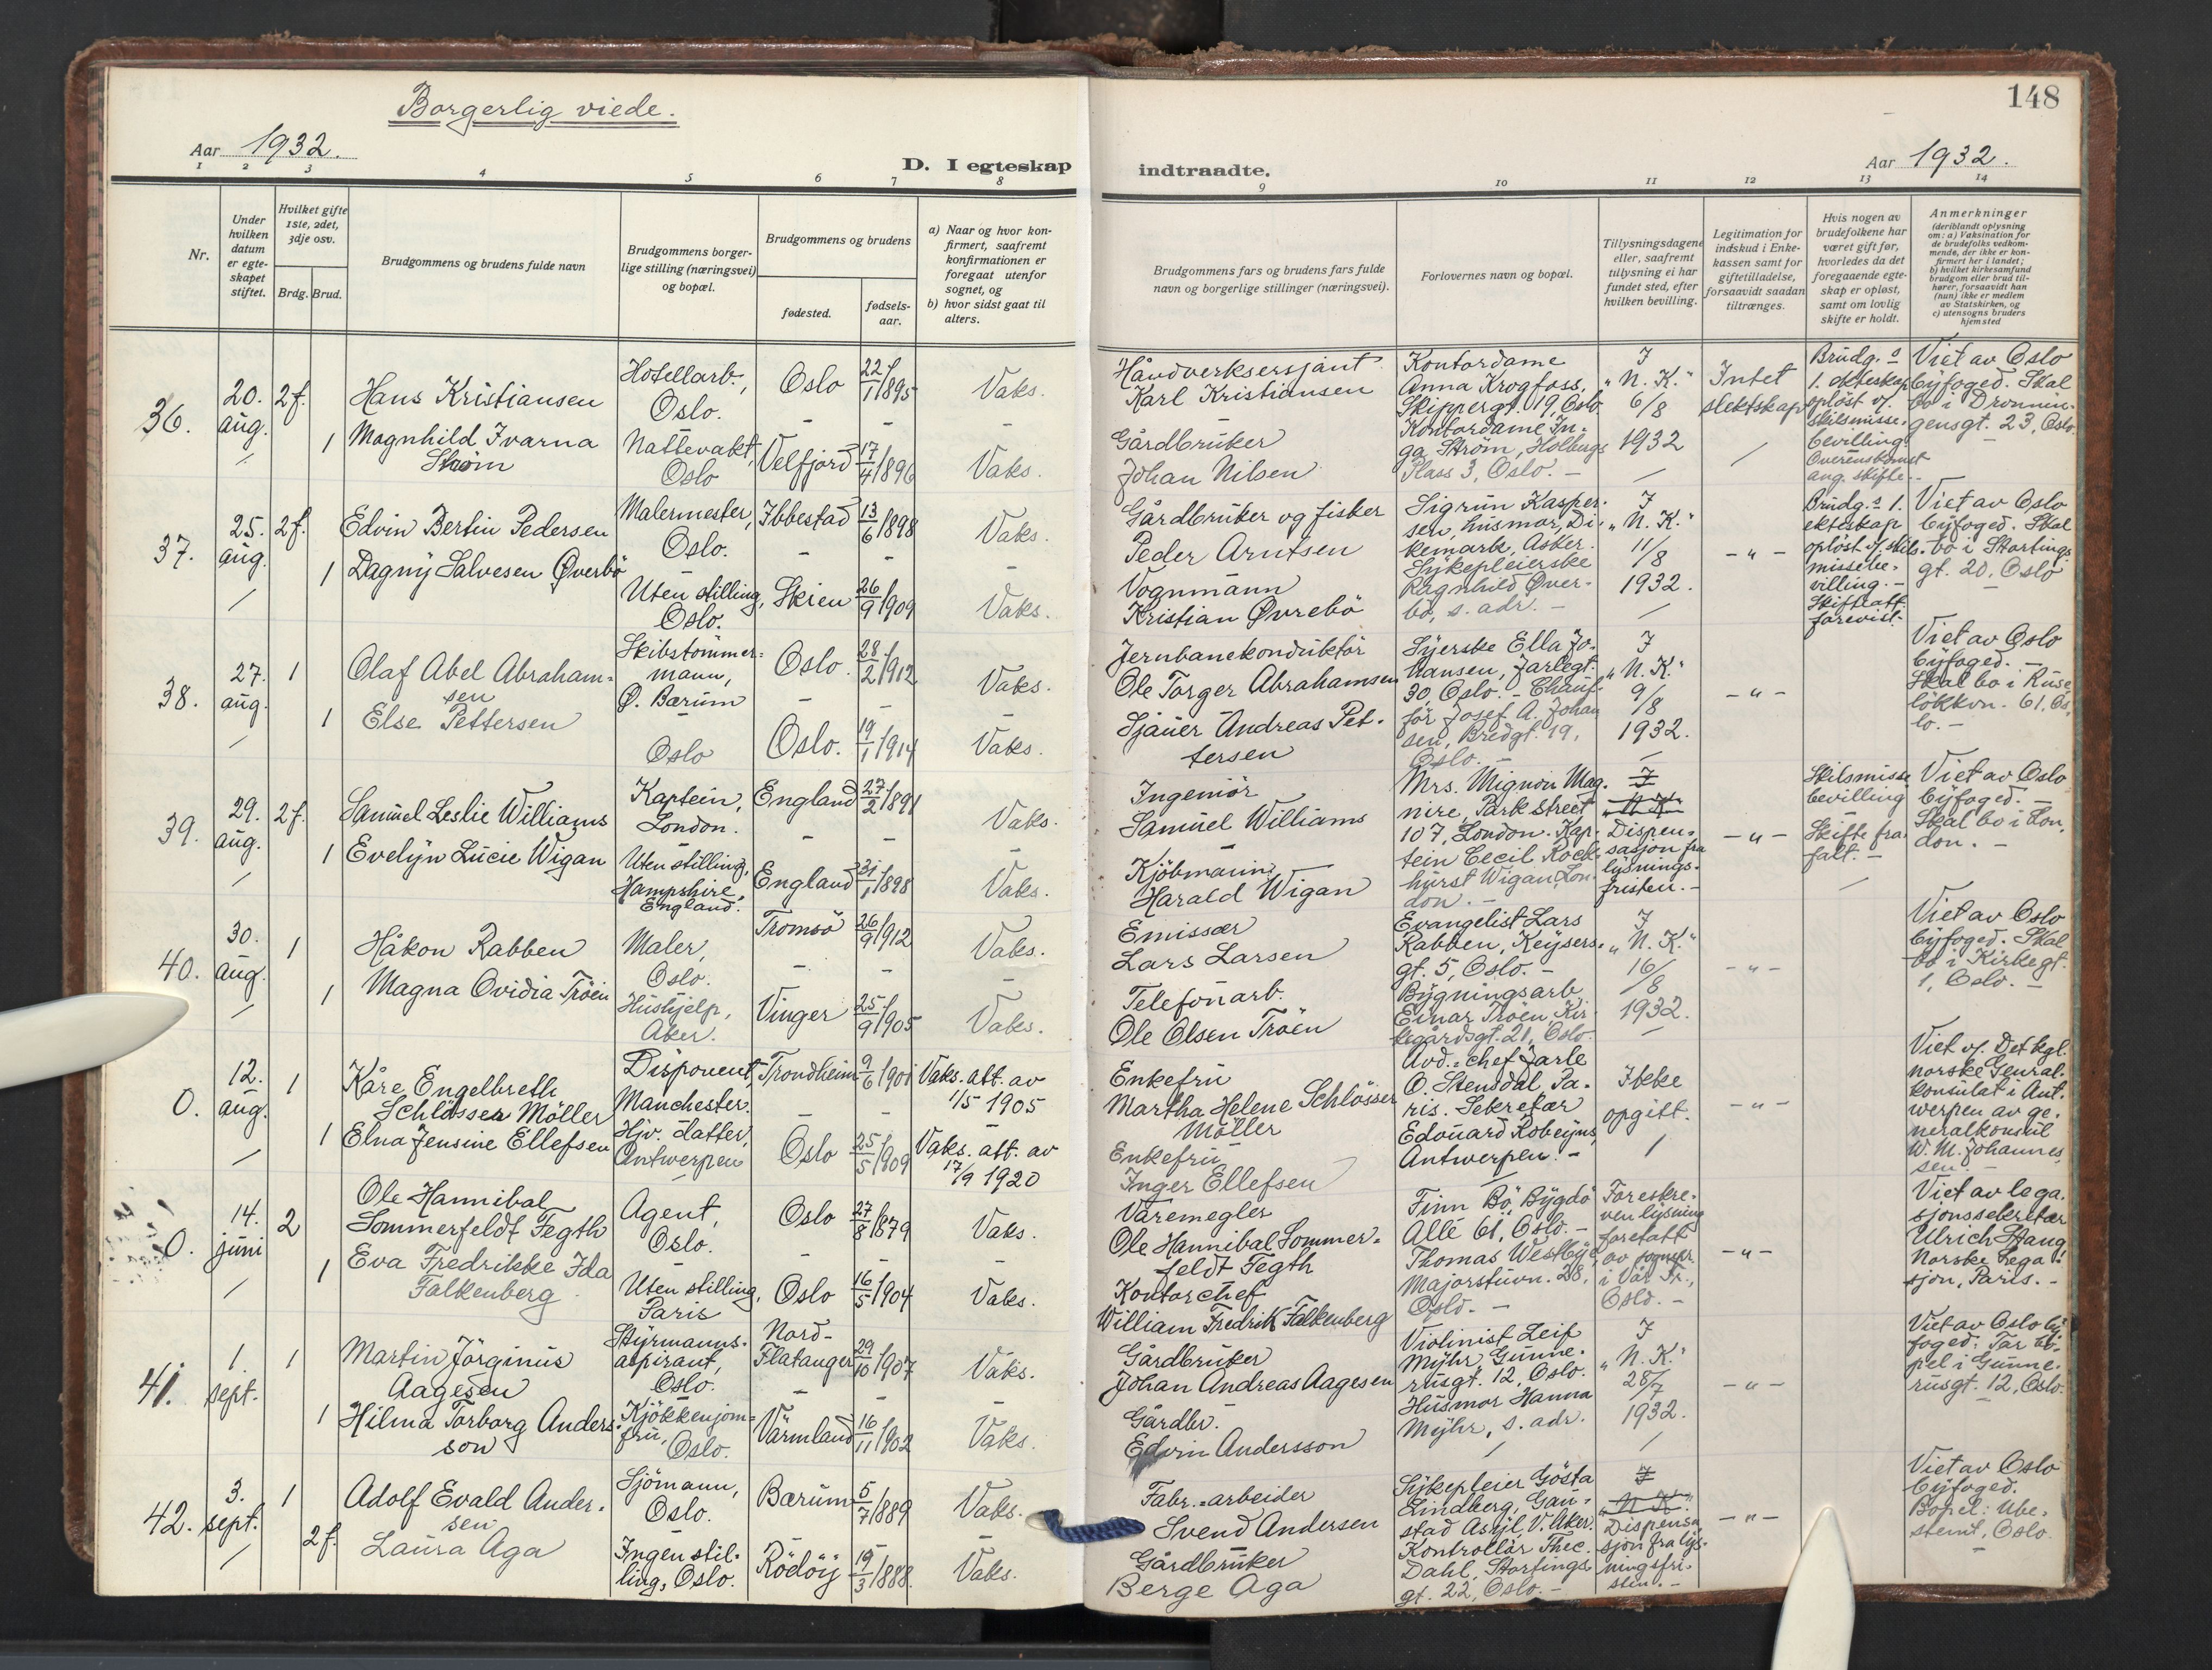 Borgerlig viede.
Aar 1932.
D. I egteskap
1 2 3 4 5 6 7 8
Nr.
Under hvilken datum er egteskapet stiftet.
Hvilket gifte 1ste, 2det, 3dje osv.
Brdg. Brud.
Brudgommens og brudens fulde navn
Brudgommens borgerlige stilling (næringsvei) og bopæl.
Brudgommens og brudens
fødested.
fødsels-aar.
a) Naar og hvor konfirmert, saafremt konfirmationen er foregaat utenfor sognet, og
b) hvor sidst gaat til alters.
148
indtraadte.
Aar 1932.
9 10 11 12 13 14
Brudgommens fars og brudens fars fulde navn og borgerlige stillinger (næringsvei).
Forlovernes navn og bopæl.
Tillysningsdagene eller, saafremt tillysning ei har fundet sted, efter hvilken bevilling.
Legitimation for indskud i Enkekassen samt for giftetilladelse, forsaavidt saadan tiltrænges.
Hvis nogen av brudefolkene har været gift før, hvorledes da det foregaaende egteskap er opløst, samt om lovlig skifte er holdt.
Anmerkninger
(deriblandt oplysning om: a) Vaksination for de brudefolks vedkommende, der ikke er konfirmert her i landet;
b) hvilket kirkesamfund brudgom eller brud tilhører, forsaavidt han (hun) ikke er medlem av Statskirken, og
c) utensogns bruders hjemsted
36. 20. aug. 2f. Hans Kristiansen Hotellarb., Oslo. Oslo 22/1 1895 Vaks.
1 Magnhild Ivarna Strøm Nattevakt, Oslo Velfjord 17/4 1896 Vaks.
Håndverksersjant Karl Kristiansen
Gårdbruker Johan Nilsen
Kontordame Anna Krogfoss, Skippergt. 19, Oslo. Kontordame Inga Strøm, Holbergs Plass 3, Oslo. –
I „N. K.“ 6/8 1932
Intet slektskap
Brudg.s 1. ekteskap opløst v/ skilsmissebevilling. Overenskomst ang. skifte. –
Viet av Oslo byfoged. Skal bo i Dronningensgt. 23, Oslo.
37. 25. aug. 2f. Edvin Bertin Pedersen Malermester, Oslo. Ibbestad 13/6 1898 Vaks.
1 Dagny Salvesen Øverbö Uten stilling, Oslo. Skien 26/9 1909 Vaks.
Gårdbruker og fisker Peder Arntsen
Vognmann Kristian Øvrebö
Sigrun Kaspersen, husmor, Dikemark, Asker. Sykepleierske Ragnhild Øverbö, s. adr. –
I „N. K.“ 11/8 1932.
– „ –
Brudg.s 1. ekteskap opløst v/ skilsmissebevilling. – Skifteatt. forevist. –
Viet av Oslo byfoged. Skal bo i Stortingsgt. 20, Oslo
38. 27. aug. 1 Olaf Abel Abrahamsen Skibstömmermann, Ø. Bærum Oslo. 28/2 1912 Vaks.
1 Else Pettersen Oslo Oslo. 19/1 1914 Vaks.
Jernbanekonduktör Ole Torger Abrahamsen
Sjauer Andreas Pettersen
Syerske Ella Johansen, Jarlegt. 30, Oslo. – Chauffør Josef A. Johansen, Bredgt. 19, Oslo. –
I „N. K.“ 9/8 1932.
– „ –
Viet av Oslo byfoged. – Skal bo i Ruselökkvn. 61, Oslo. –
39. 29. aug. 2f. Samuel Leslie Williams Kaptein, London. England 27/2 1891 Vaks.
1 Evelyn Lucie Wigan Uten stilling, Hampshire, England. England 31/1 1898 Vaks.
Ingeniör Samuel Williams
Kjöbmann Harald Wigan
Mrs. Mignon Magnire, Park street 107, London. Kaptein Cecil Rockhurst Wigan, London. –
I „N. K.“ Dispensasjon fra lysningsfristen. –
– „ –
Skilsmissebevilling – Skifte frafalt. –
Viet av Oslo byfoged. – Skal bo i London. –
40. 30. aug. 1 Håkon Rabben Maler, Oslo. Tromsö 26/9 1912 Vaks.
1 Magna Ovidia Tröen Hushjelp, Aker. Vinger 25/9 1905 Vaks.
Emissær Lars Larsen
Telefonarb. Ole Olsen Tröen
Evangelist Lars Rabben, Keysersgt. 5, Oslo. – Bygningsarb. Einar Tröen, Kirkegårdsgt. 21, Oslo.
I „N. K.“ 16/8 1932.
– „ –
Viet av Oslo byfoged. Skal bo i Kirkegt. 1, Oslo. –
0. 12. aug. 1 Kåre Engelbreth Schlösser Möller Disponent, Manchester. Trondheim 9/6 1901 Vaks. att. av 1/5 1905
1 Elna Jensine Ellefsen Hjv. datter, Antwerpen Oslo 25/5 1909 Vaks. att. av 17/9 1920
Enkefru Martha Helene Schlösser Möller
Enkefru Inger Ellefsen
Avd.-chef Jarle O. Stensdal, Paris. Sekretær Edouard Robeyns, Antwerpen. –
Ikke opgitt.
– „ –
Viet v/ Det kgl. norske Generalkonsulat i Antwerpen av generalkonsul W. M. Johannessen. –
0. 14. juni 2 Ole Hannibal Sommerfeldt Fegth Agent, Oslo. Oslo 27/8 1879 Vaks.
1 Eva Fredrikke Ida Falkenberg Uten stilling, Paris Oslo 16/5 1904 Vaks.
Varemegler Ole Hannibal Sommerfeldt Fegth
Kontorchef William Fredrik Falkenberg
Finn Bö, Bygdö Allé 61, Oslo. – Thomas Westbye, Majorstuvn. 28, Oslo. –
Foreskreven lysning foretatt av sognepr. i Vår Fr., Oslo. –
– „ –
Viet av legasjonssekretær Ulrich Stang, Norske Legasjon, Paris. –
41. 1. sept. 1 Martin Jörginus Aagesen Styrmannsaspirant, Oslo. Nord-Flatanger 29/10 1907 Vaks.
1 Hilma Torborg Andersson Kjökkenjomfru, Oslo. Värmland 16/11 1902 Vaks.
Gårdbruker Johan Andreas Aagesen
Gårdbr. Edvin Andersson
Violinist Leif Myhr, Gunnerusgt. 12, Oslo. Husmor Hanna Myhr, s. adr.
I „N. K.“ 28/7 1932.
– „ –
Viet av Oslo byfoged. Tar bopel i Gunnerusgt. 12, Oslo.
42. 3. sept. 1 Adolf Evald Andersen Sjömann, Oslo. Bærum 5/7 1889 Vaks.
2f. Laura Aga Ingen stilling, Oslo. Rödöy 19/3 1888. Vaks.
Fabr.-arbeider Svend Andersen
Gårdbruker Berge Aga
Sykepleier Gösta Lindberg, Gaustad Asyl, V. Aker. Kontrollör Thec. Dahl, Stortingsgt. 22, Oslo. –
I „N. K.“ Dispensasjon fra lysningsfristen. –
– „ –
Viet av Oslo byfoged. Bopel: Ubestemt, Oslo.